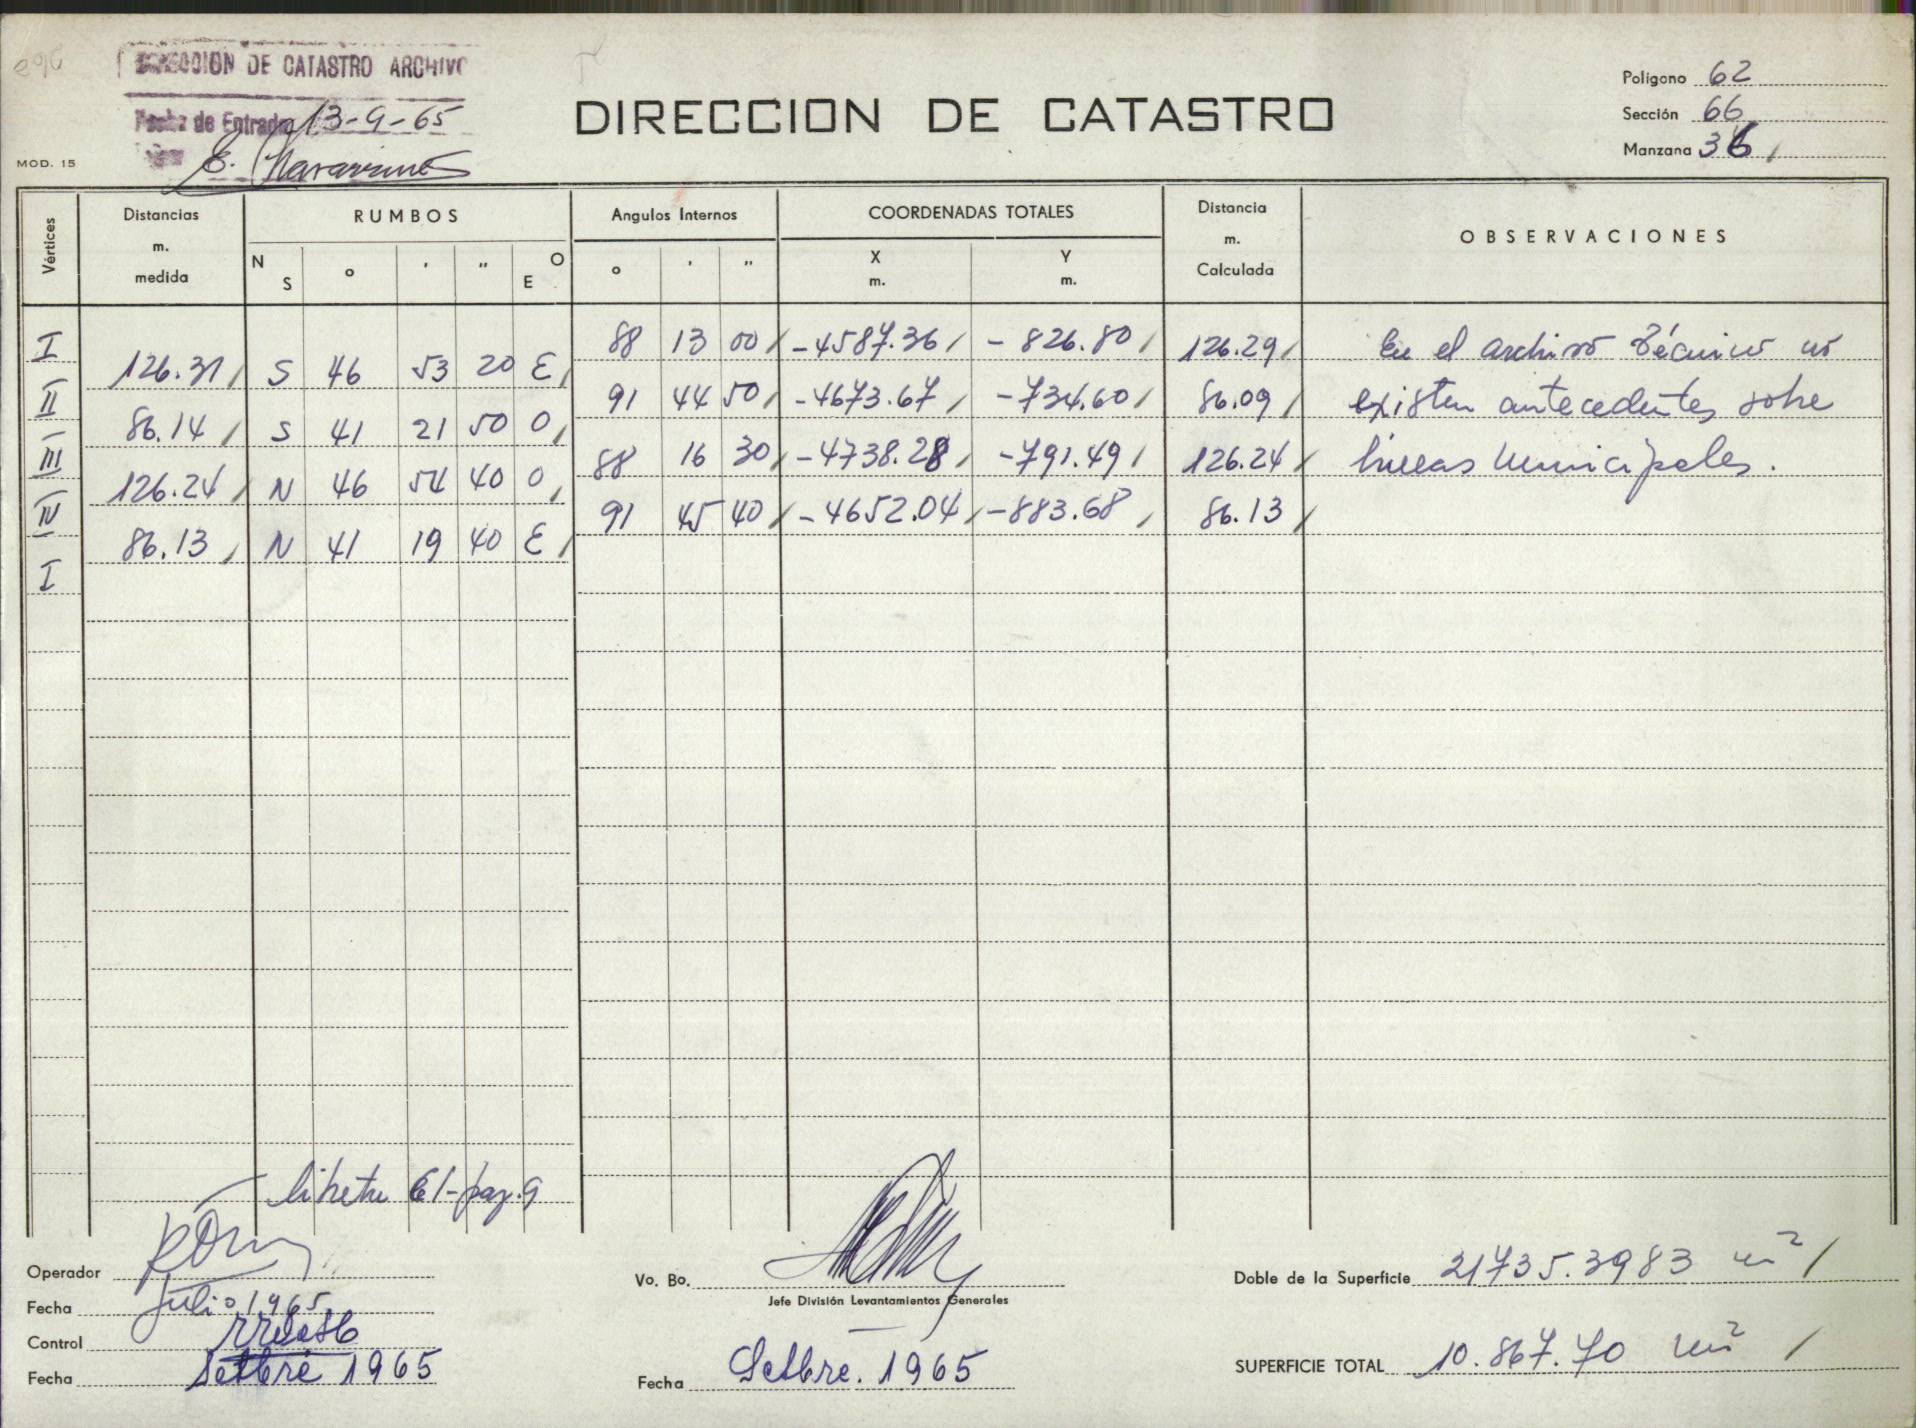 DIRECCION DE CATASTRO ARCHIVO
Fecha de Entrada 13-9-65
E.
MOD. 15
DIRECCION DE CATASTRO
Polígono 62
Sección 66
Manzana 36
Vértices
Distancias m. medida
RUMBOS
N S ° ' " O E
Angulos Internos
° ' "
COORDENADAS TOTALES
X m. Y m.
Distancia m. Calculada
OBSERVACIONES
I 88 13 00 -4587.36 -826.80 126.29 En el archivo técnico no
126.31 S 46 53 20 E
II 91 44 50 -4673.67 -734.60 86.09 existen antecedentes sobre
86.14 S 41 21 50 O
III 88 16 30 -4738.28 -791.49 126.24 líneas Municipales.
126.24 N 46 54 40 O
IV 91 45 40 -4652.04 -883.68 86.13
86.13 N 41 19 40 E
I
libreta 61-pag.9
Operador
Fecha Julio 1965
Control
Fecha Setbre 1965
Vo. Bo.
Jefe División Levantamientos Generales
Fecha Setbre. 1965
Doble de la Superficie 21735.3983 m²
SUPERFICIE TOTAL 10.867.70 m²